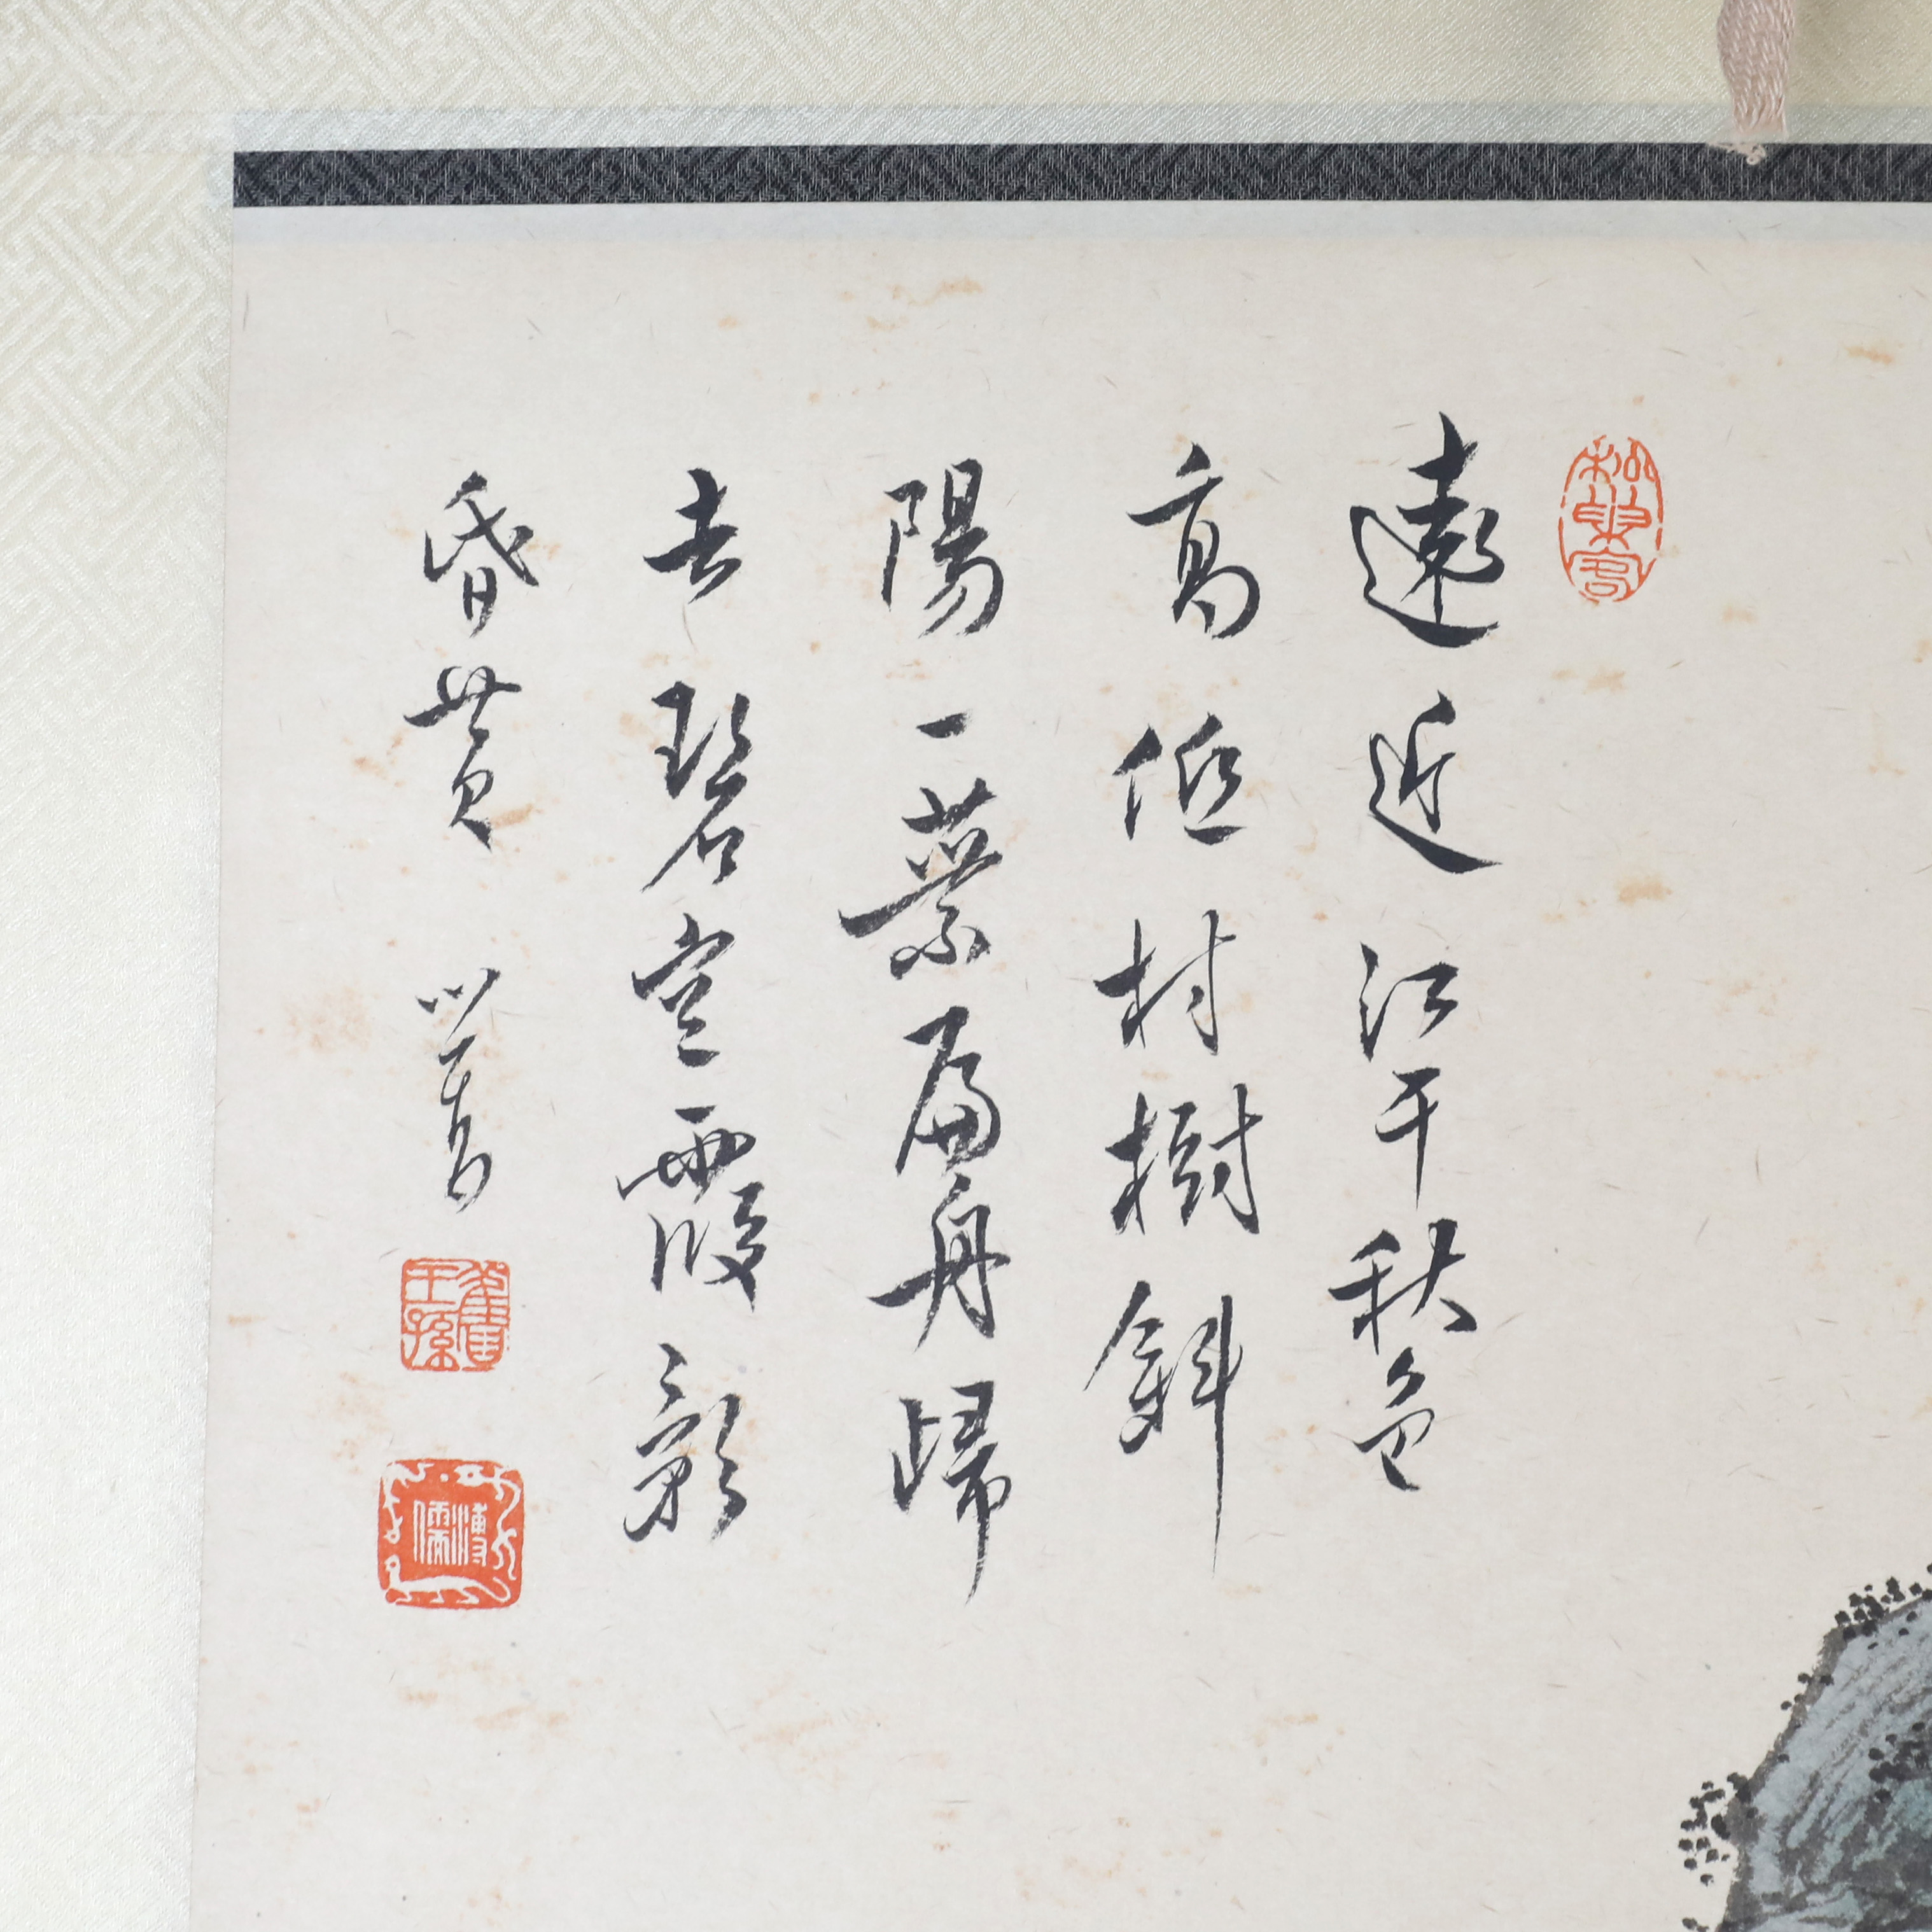 松巢客
遠近江干秋色
高低村樹斜
陽一葉扁舟歸
去碧空霞影
昏黄 心畬
舊王孫
溥儒